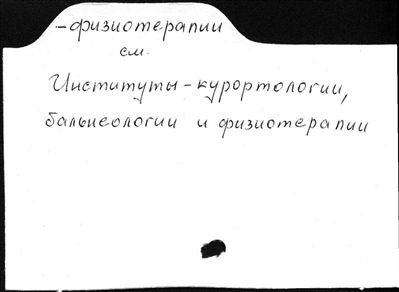 -физиотерапии
см.
Институты-курортологии,
бальнеологии и физиотерапии